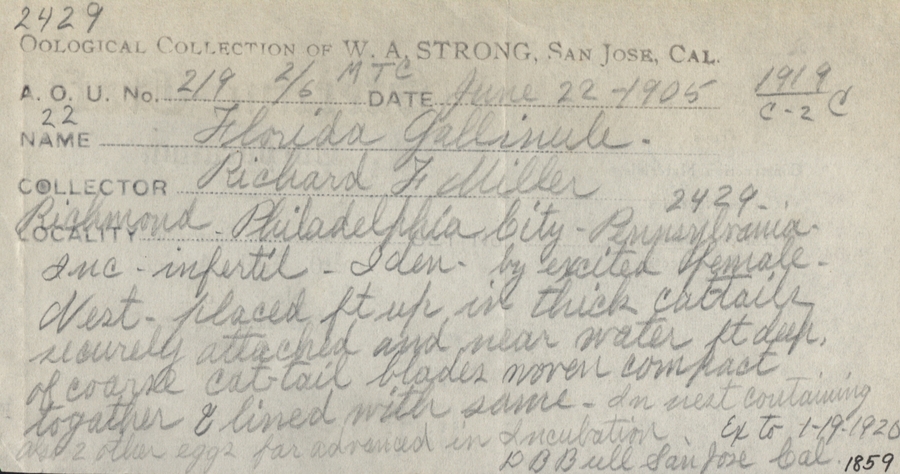 2429
OOLOGICAL COLLECTION OF W. A. STRONG, SAN JOSE, CAL.
A. O. U. No. 219 2/6 MTC DATE June 22 - 1905 1919
22 C-2 C
NAME Florida Gallinule.
COLLECTOR Richard F Miller
2429-
LOCALITY Richmond - Philadelphia City - Pennsylvania.
Inc - infertil - Iden - by excited female -
Nest - placed ft up in thick cattails
securely attached and near water ft deep.
of coarse cat-tail blades woven compact
togather & lined with same - In nest containing
also 2 other eggs far advanced in Incubation. Ex to 1-19-1920
D B Bull San Jose Cal. 1859